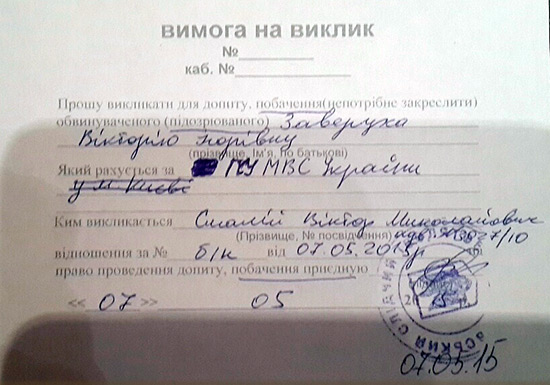 ВИМОГА НА ВИКЛИК
№
каб. №
Прошу викликати для допиту, побачення(непотрібне закреслити)
обвинуваченого (підозрюваного) Заверуха
Вікторію Ігорівну
(прізвище, Ім'я, по батькові)
Який рахується за ГУ МВС України
у м. Києві
Ким викликається Смалій Віктор Миколайович
(Прізвище, № посвідчення)
відношення за № б/н від 07.05.2015р
право проведення допиту, побачення приєдную
<< 07 >> 05
07.05.15